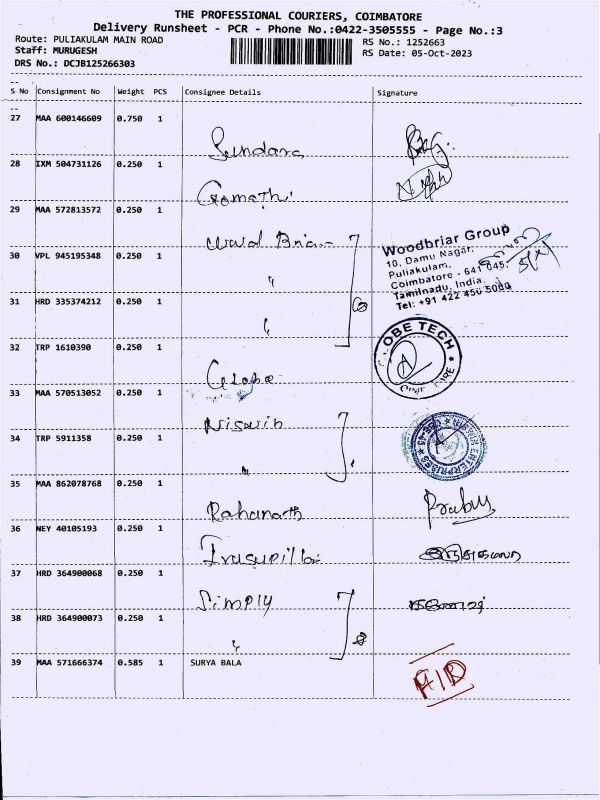 THE PROFESSIONAL COURIERS, COIMBATORE
Delivery Runsheet - PCR - Phone No.:0422-3505555 - Page No.:3
Route: PULIAKULAM MAIN ROAD
RS No.: 1252663
Staff: MURUGESH
RS Date: 05-Oct-2023
DRS No.: DCJB125266303
S No Consignment No Weight PCS Consignee Details Signature
27 MAA 600146609 0.750 1 Sundara
28 IXM 504731126 0.250 1 Gomathi
29 MAA 572813572 0.250 1
Woodbriar Group
10, Damu Nagar,
Puliakulam,
Coimbatore - 641 045.
Tamilnadu, India.
Tel: +91 422 450 5000
30 VPL 945195348 0.250 1 "
31 HRD 335374212 0.250 1 "
32 TRP 1610390 0.250 1
OBE TECH
33 MAA 570513052 0.250 1
34 TRP 5911358 0.250 1 "
ENTERPRISES
35 MAA 862078768 0.250 1 Prabu
36 NEY 40105193 0.250 1
37 HRD 364900068 0.250 1 Simply
38 HRD 364900073 0.250 1 "
39 MAA 571666374 0.585 1 SURYA BALA